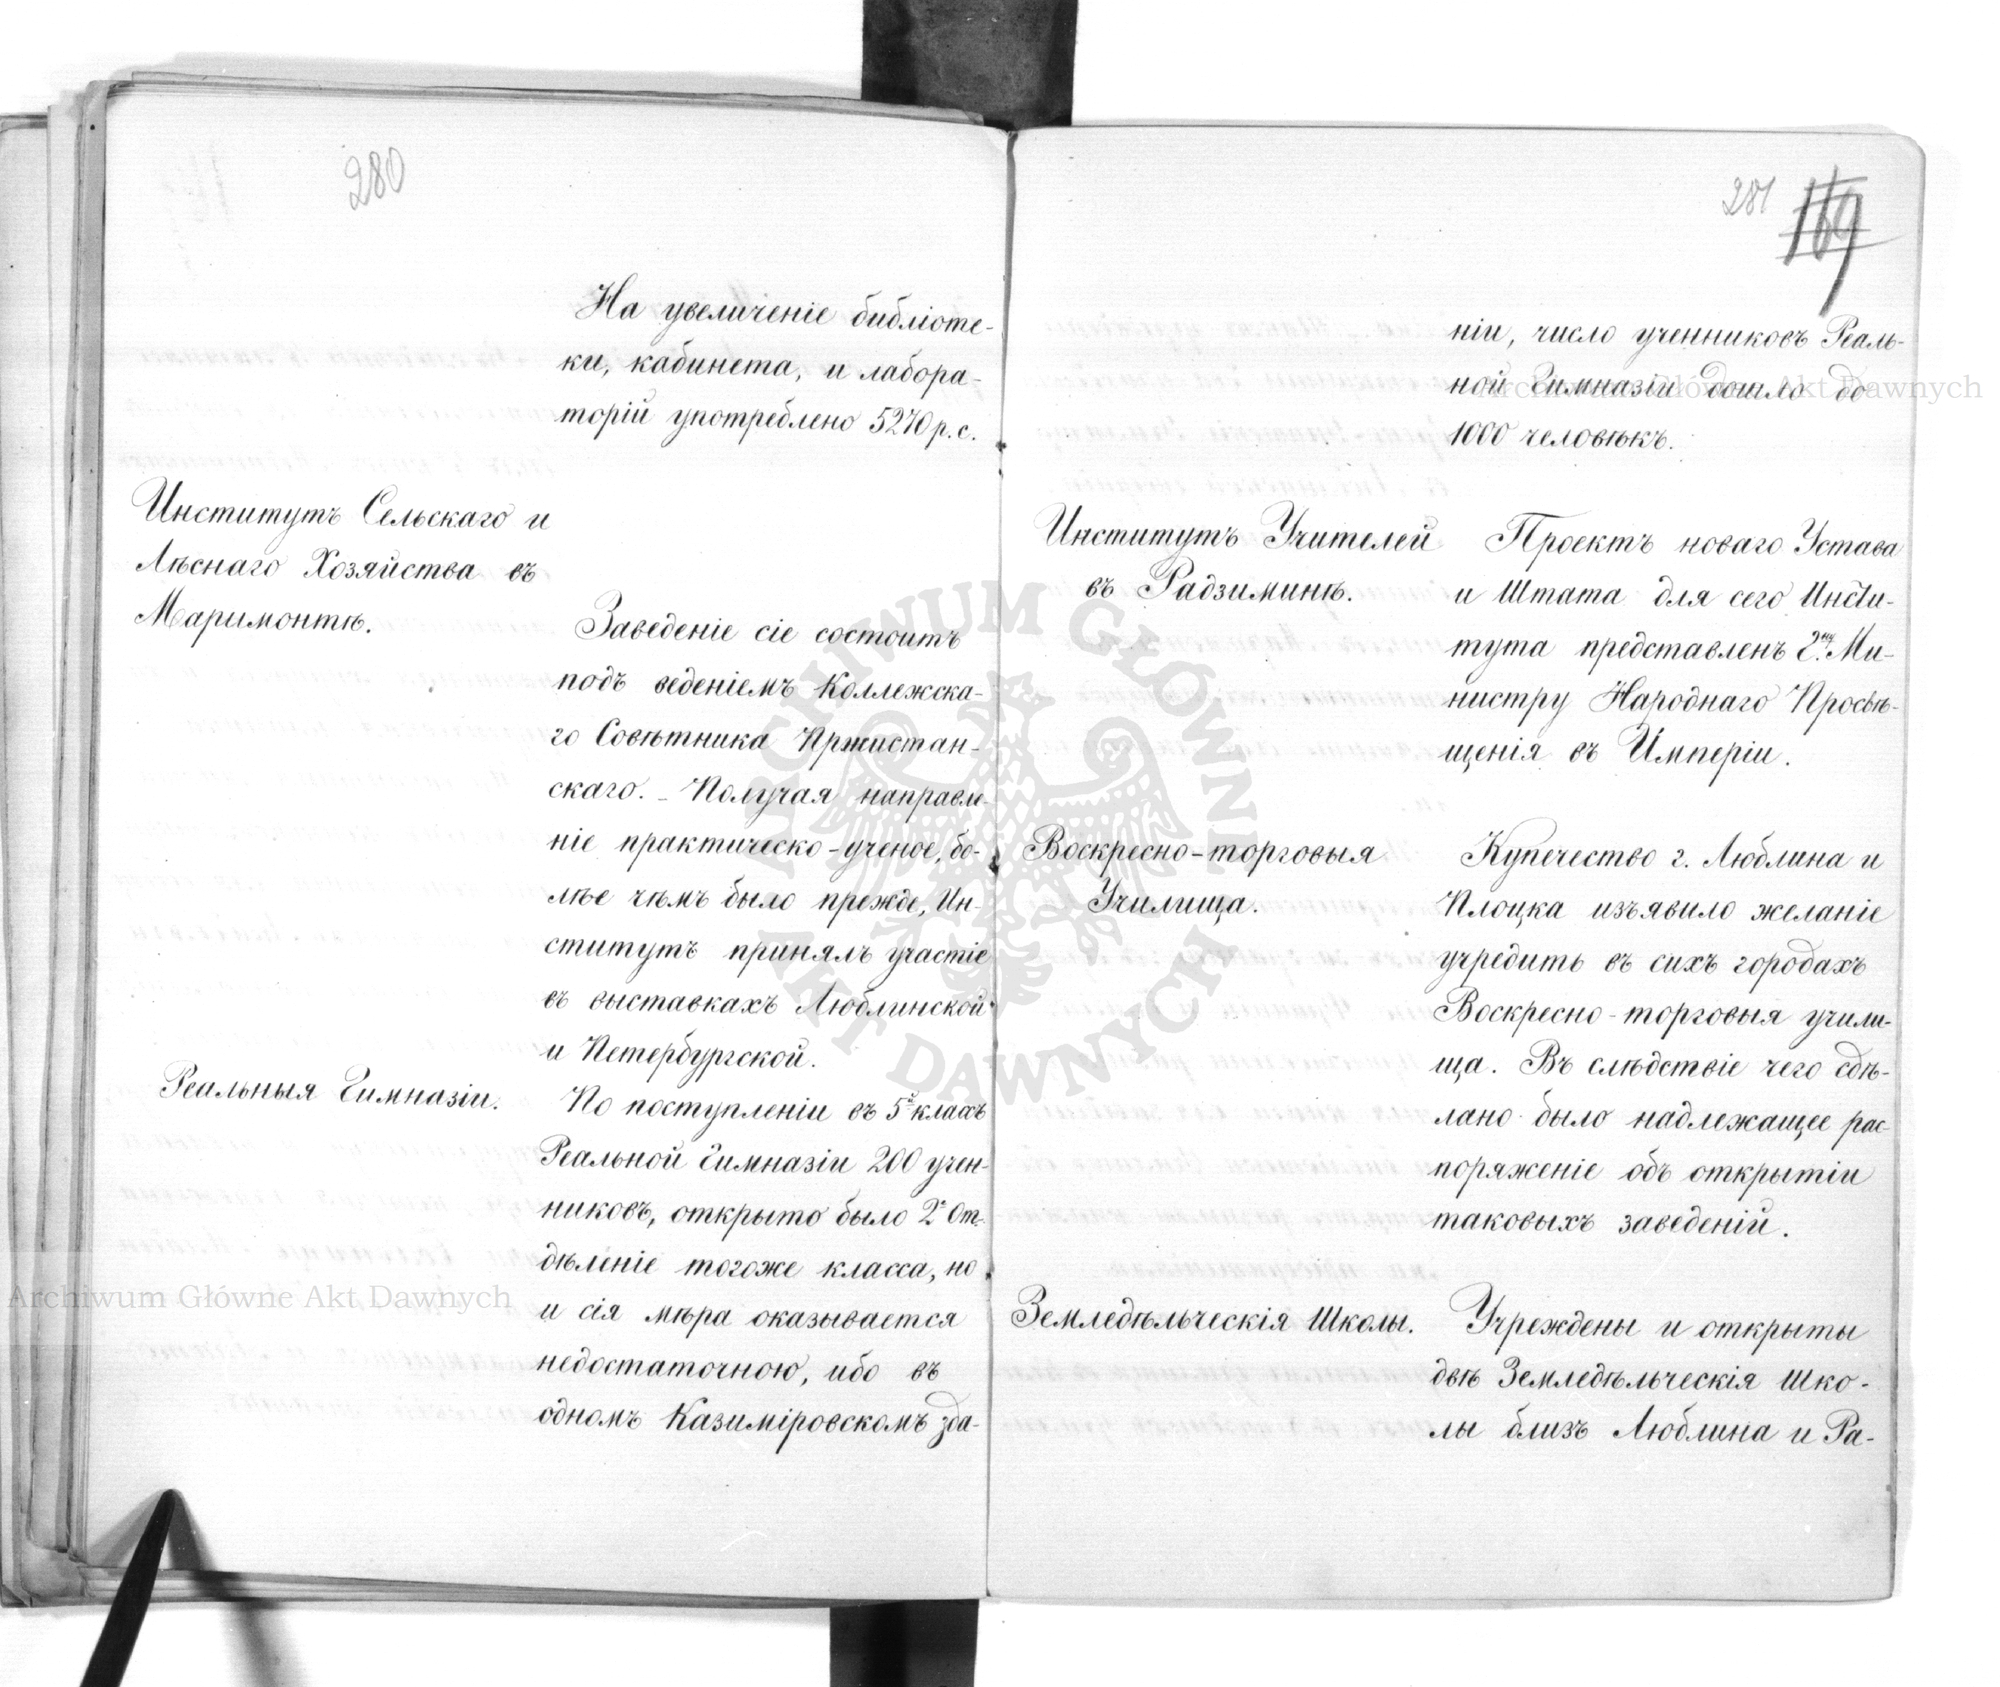 280
На увеличеніе библіоте-
ки, кабинета, и лабора-
торій употреблено 5270 р. с.
Институтъ Сельскаго и
Лѣснаго Хозяйства въ
Маримонтѣ.
Заведеніе сіе состоитъ
подъ веденіемъ Коллежска-
го Совѣтника Пржистан-
скаго. - Получая направле-
ніе практическо-ученое, бо-
лѣе чѣмъ было прежде, Ин-
ститутъ принялъ участіе
въ выставкахъ Люблинской
и Петербургской.
Реальныя Гимназіи.
По поступленіи въ 5й классъ
Реальной Гимназіи 200 учен-
никовъ, открыто было 2е От-
дѣленіе тогоже класса, но
и сія мѣра оказывается
недостаточною, ибо въ
одномъ Казиміровскомъ зда-
281 169
ніи, число ученниковъ Реаль-
ной Гимназіи дошло до
1000 человѣкъ.
Институтъ Учителей
въ Радзиминѣ.
Проектъ новаго Устава
и Штата для сего Инсти-
тута представленъ Гну. Ми-
нистру Народнаго Просвѣ-
щенія въ Имперіи.
Воскресно-торговыя
Училища.
Купечество г. Люблина и
Плоцка изъявило желаніе
учредить въ сихъ городахъ
Воскресно-торговыя учили-
ща. Въ слѣдствіе чего сдѣ-
лано было надлежащее рас-
поряженіе объ открытіи
таковыхъ заведеній.
Земледѣльческія Школы.
Учреждены и открыты
двѣ Земледѣльческія Шко-
лы близъ Люблина и Ра-
ARCHIWUM GŁÓWNE AKT DAWNYCH
Archiwum Główne Akt Dawnych
Archiwum Główne Akt Dawnych